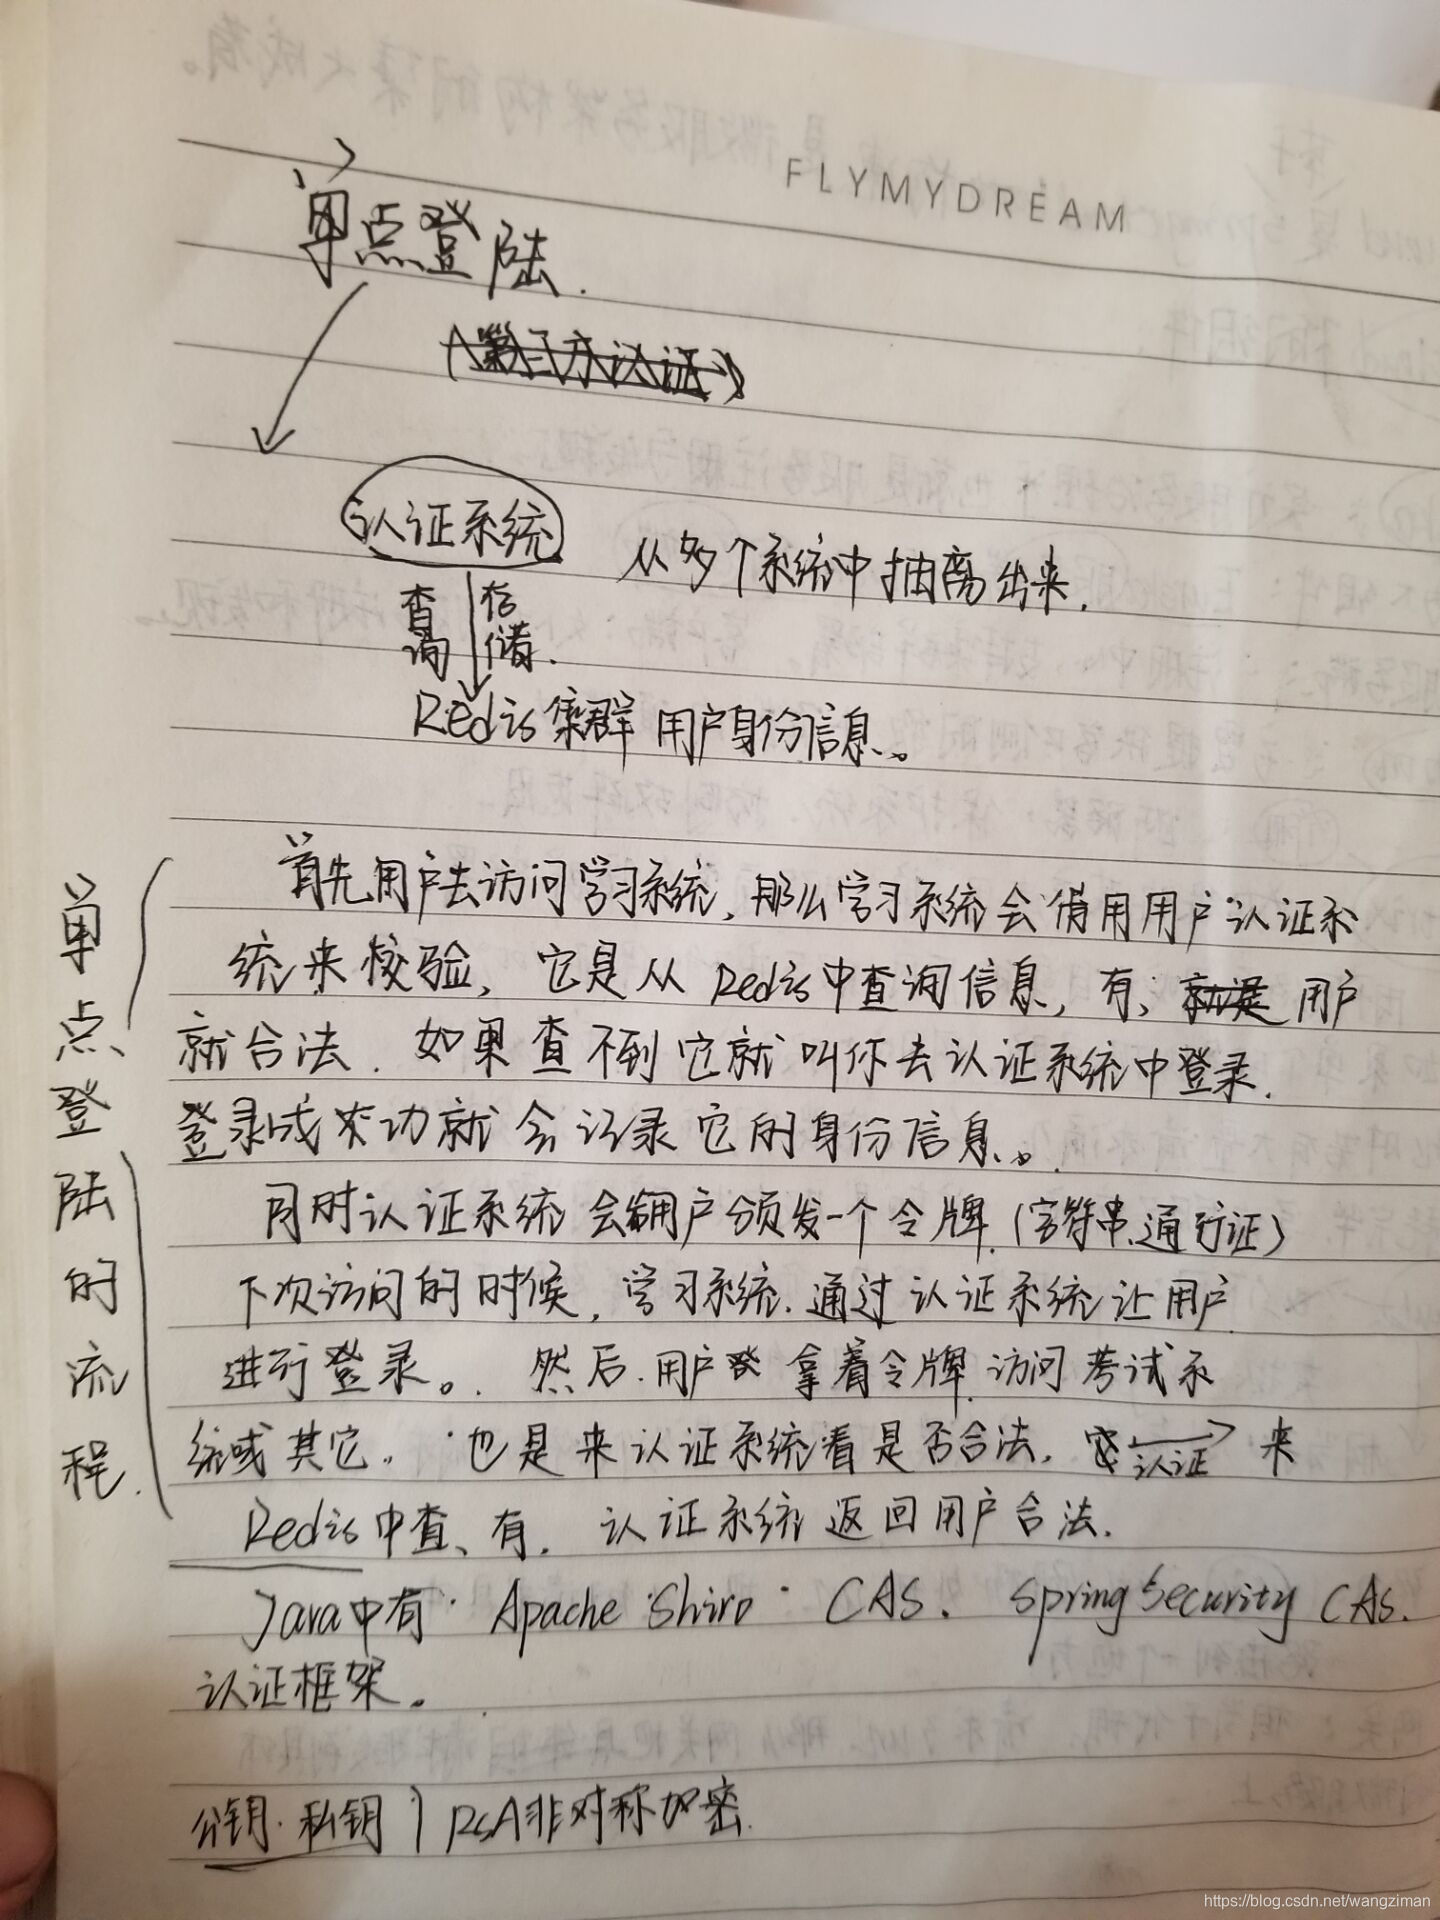 FLYMYDREAM
单点登陆.
(第三方认证)
认证系统 从多个系统中抽离出来.
查询 存储.
Redis集群 用户身份信息。
单点登陆的流程.
首先用户去访问学习系统,那么学习系统会借用用户认证系
统来校验,它是从Redis中查询信息,有、就是 用户
就合法. 如果查不到它就叫你去认证系统中登录.
登录成功就会记录它的身份信息。
同时认证系统会给用户颁发一个令牌.(字符串、通行证)
下次访问的时候,学习系统.通过认证系统让用户
进行登录。然后.用户 拿着令牌 访问考试系
统或其它. 也是来认证系统看是否合法. 认证 来
Redis中查、有. 认证系统返回用户合法.
Java中有 Apache Shiro CAS. Spring Security CAS.
认证框架。
公钥.私钥 RSA非对称加密.
https://blog.csdn.net/wangziman